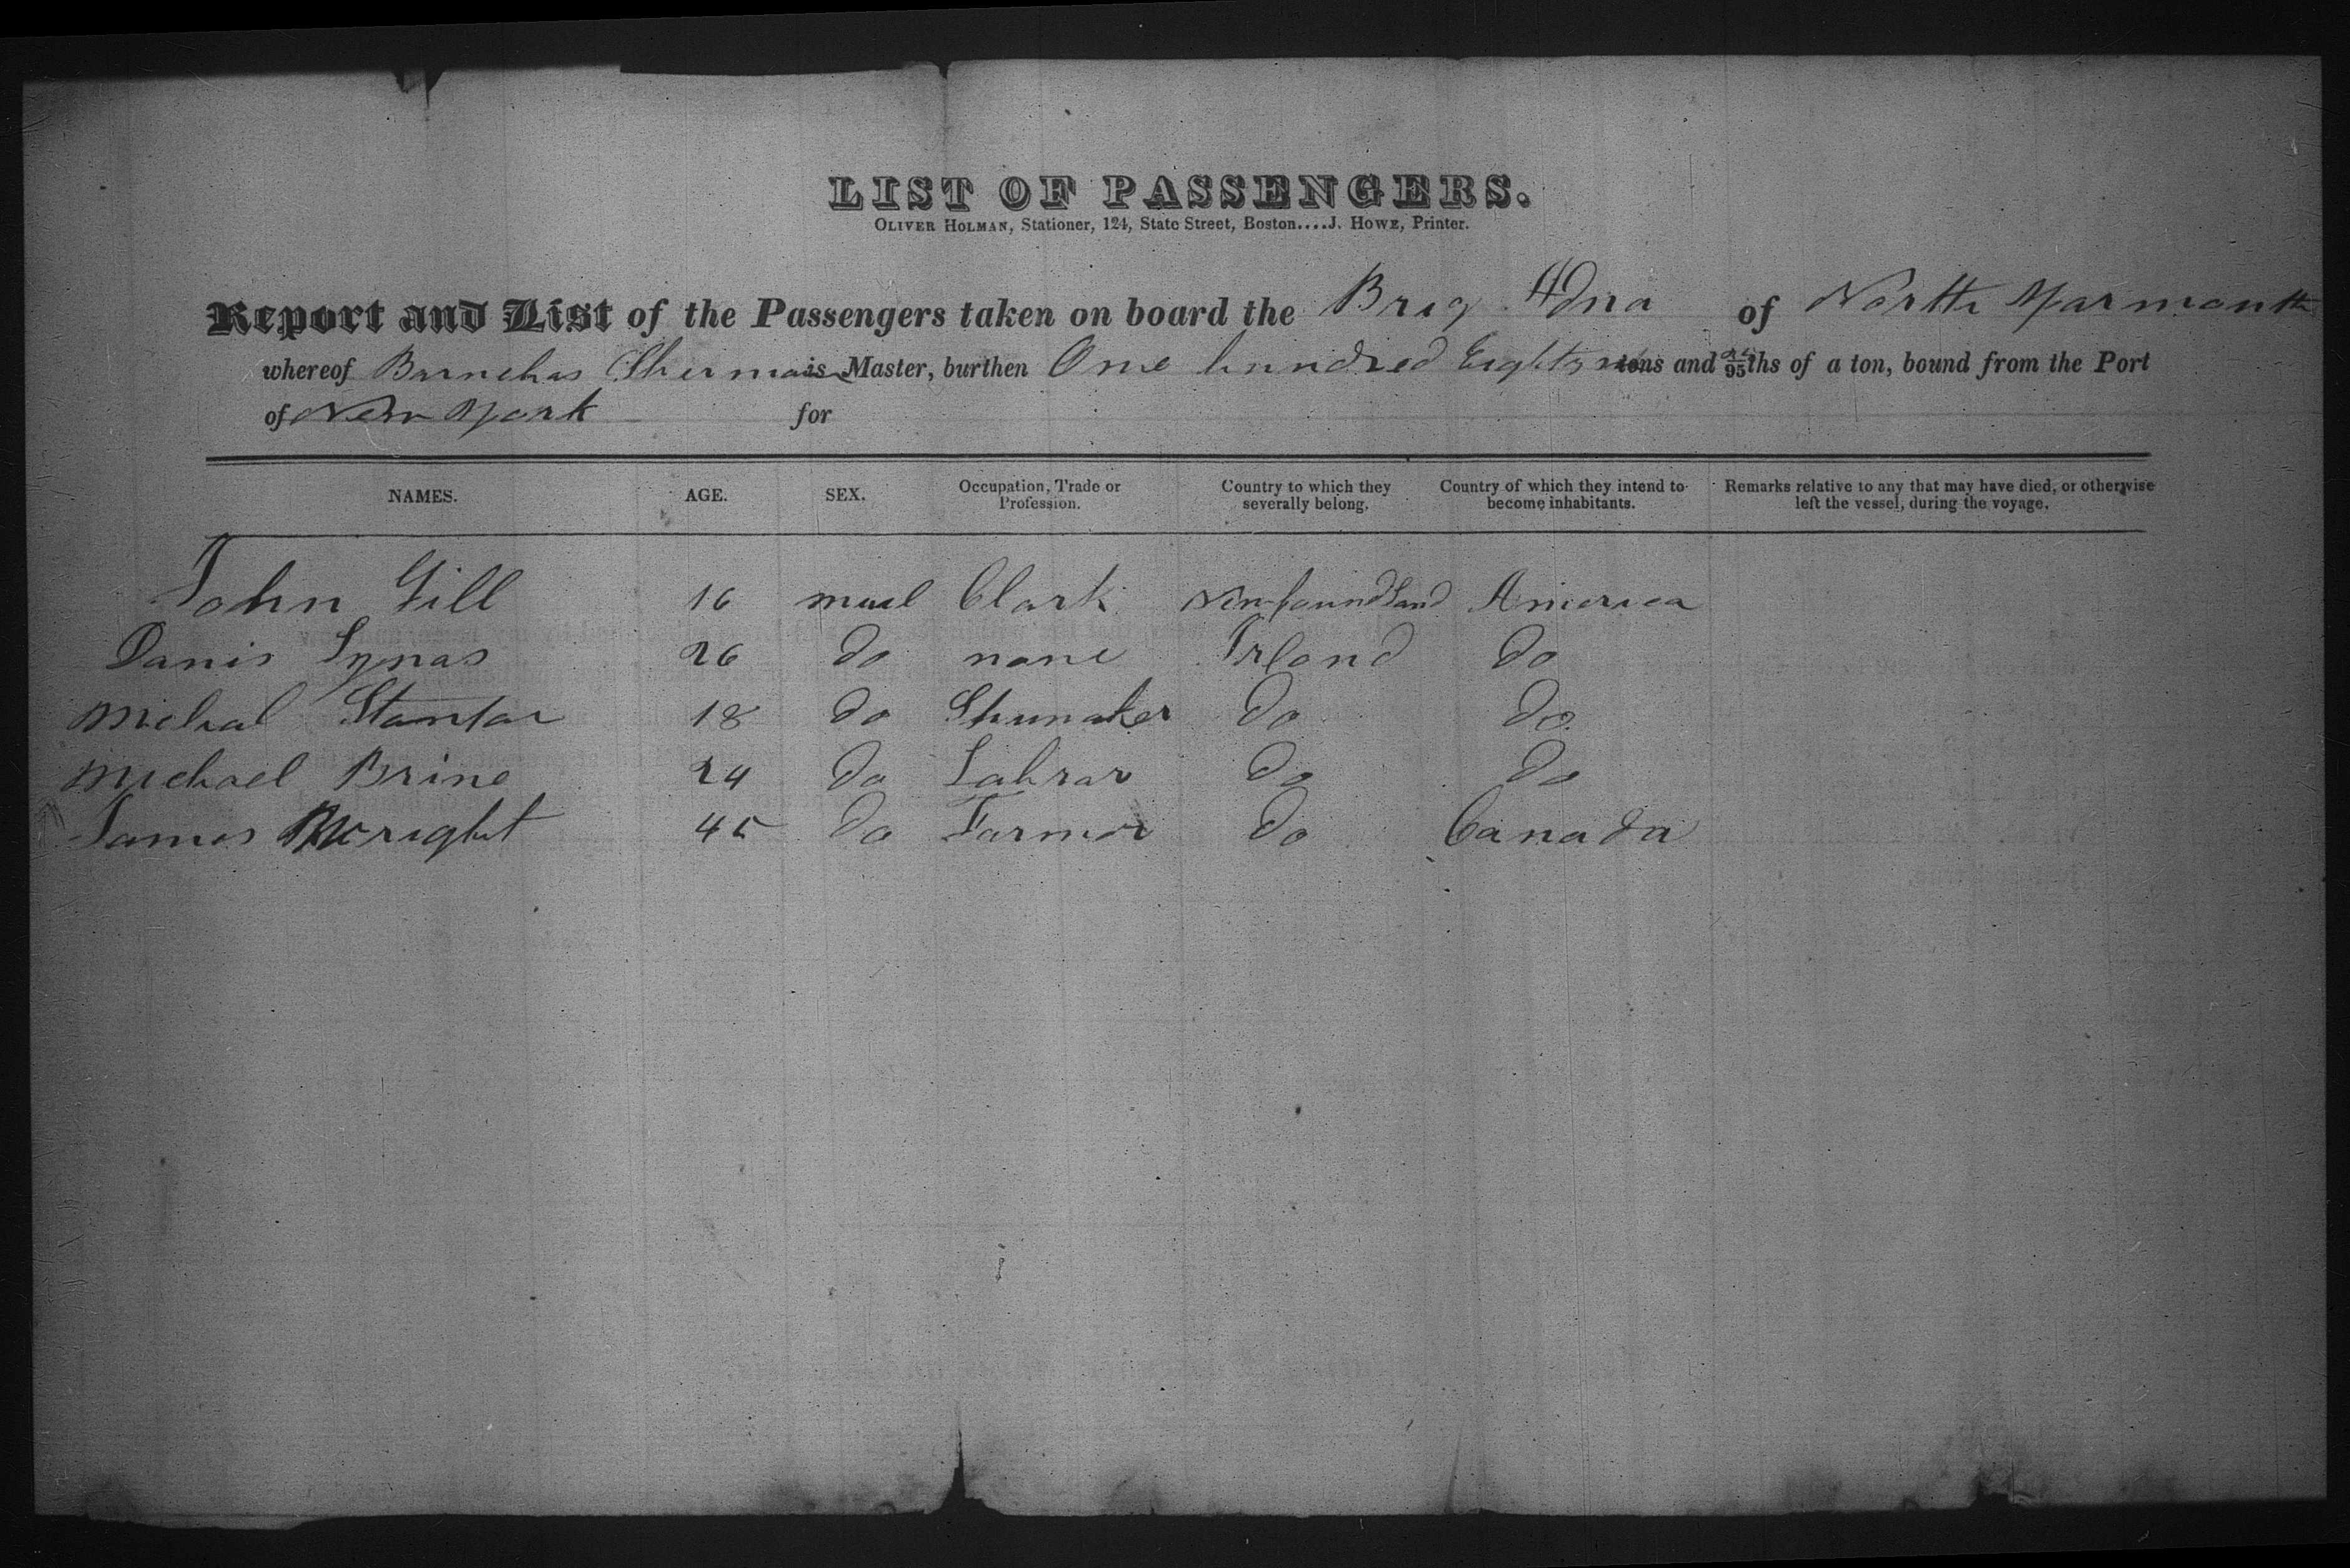 LIST OF PASSENGERS.
OLIVER HOLMAN, Stationer, 124, State Street, Boston....J. HOWE, Printer.
Report and List of the Passengers taken on board the Brig of North Yarmouth
whereof Barnebas Sherman is Master, burthen One hundred Eighty tons and /95ths of a ton, bound from the Port
of New York for
NAMES. AGE. SEX. Occupation, Trade or Profession. Country to which they severally belong. Country of which they intend to become inhabitants. Remarks relative to any that may have died, or otherwise left the vessel, during the voyage.
John Gill 16 Clark Newfoundland America
Danis 26 do none Irland do
18 do Shumaker do do
Michael Brine 24 do Labrar do do
James Wright 45 do Farmer do Canada